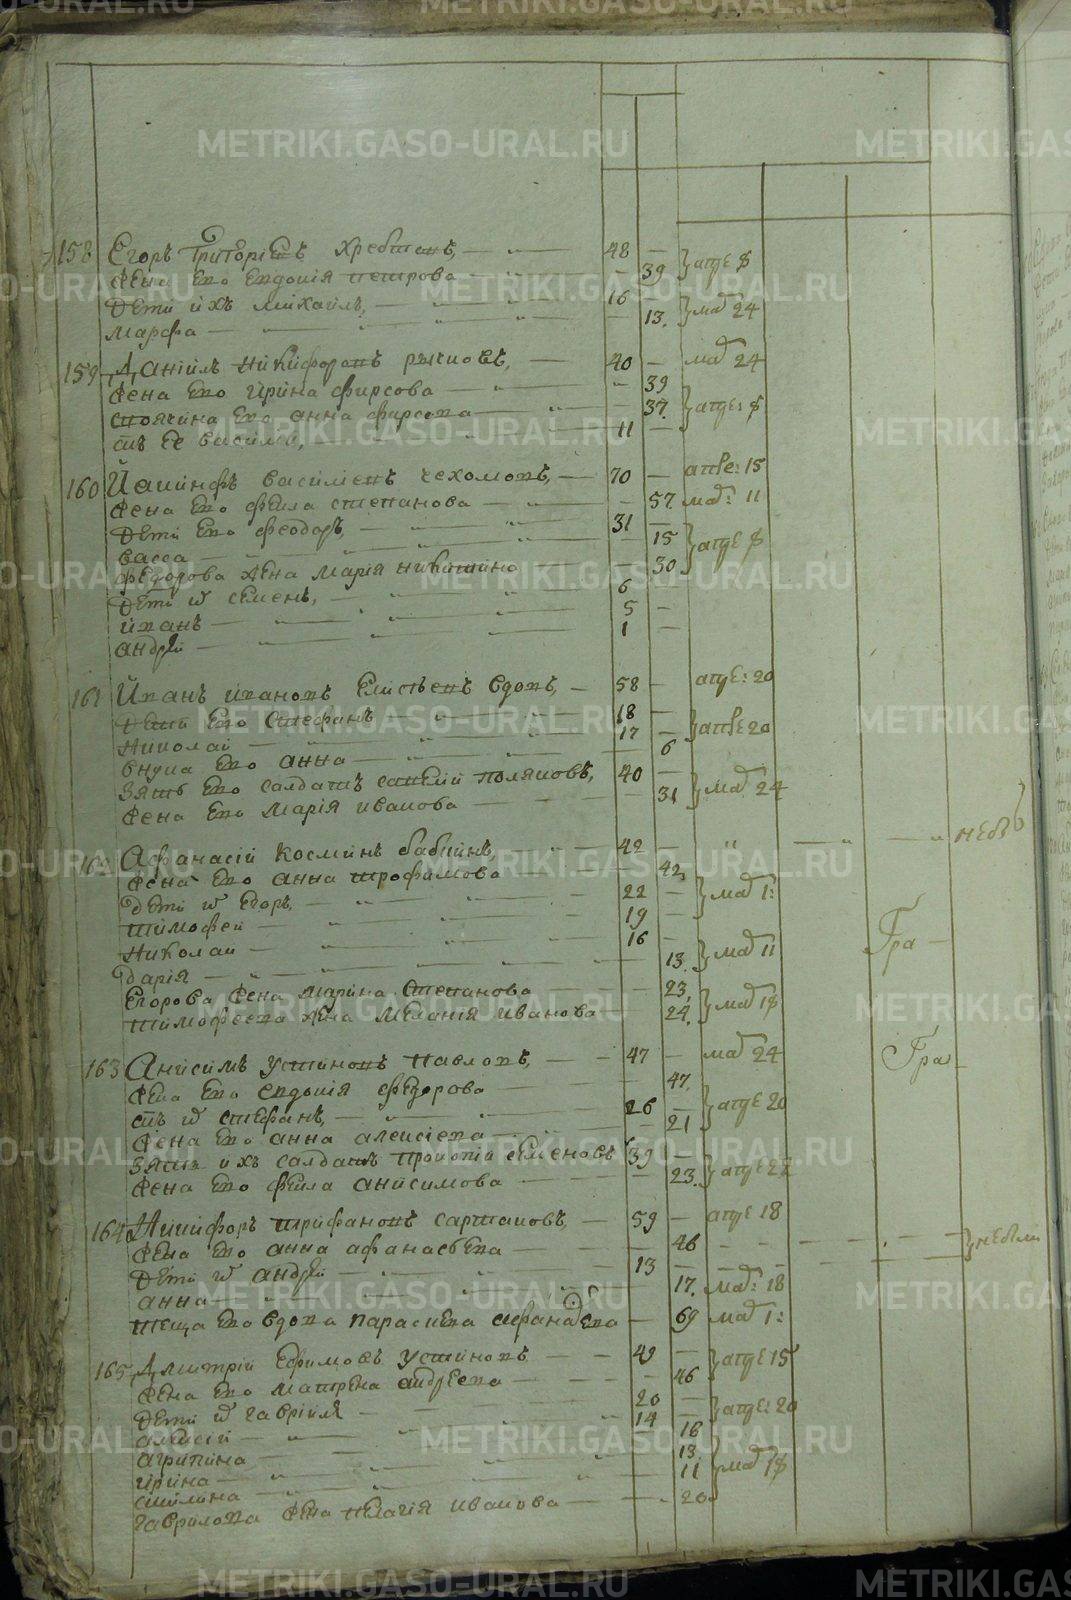 METRIKI.GASO-URAL.RU
158 Егоръ Григорїевъ 48
Жена Его Евдокїя петрова 39 апре 8
Дети ихъ михаилъ, 16
Марфа 13. маӏ 24
159 Данїилъ Никифоровъ рычковъ, 40 маӏ 24
Жена Его Ирина фирсова 39
своячина Его анна фирсова 37. апре: 8
сн҃ъ Ее василӏй, 11
160 Василиевъ чехомовъ, 70 апре: 15
Жена Его фекла степанова 57. маӏ: 11
Дети Его феодоръ, 31
васса 15 апре 8
федорова Жена Марїя никитина 30
Дети ѿ семенъ, 6
ӏванъ 5
андрей 1
161 Иванъ ивановъ вдовъ, 58 апре: 20
Дети Его Стефанъ 18
Николай 17 апре 20
внука Его анна 6
Зять Его салдатъ поляковъ, 40
Жена Его Марїя иванова 31 маӏ 24
162 Афанасїй Косминъ бабкинъ, 42
Жена Его анна трофимова 42
Дети ѿ Егоръ, 22 маӏ 1:
тимофей 19
Николай 16
дарїя 13. маӏ 11 Гра
Егорова Жена Марина Степанова 23,
тимофеева Жена Меланїя иванова 24. маӏ 18
163 Анисимъ Устиновъ павловъ, 47 маӏ 24 Гра
Жена Его Евдокїя федорова 47.
сн҃ъ ѿ стефанъ, 26 апре 20
Жена Его анна алексїева 21
Зять ихъ салдатъ прокопїй семеновъ 39
Жена Его фекла анисимова 23. апре 22
164 Никифоръ трифановъ сартаковъ, 59 апре 18
Жена Его анна афанасьева 46
Дети ѿ андрей 13
анна 17. маӏ: 18
теща Его вдова параскева 69 маӏ 1:
165 Дмитрїй Ефимовъ устиновъ 49 апре 15
Жена Его матрена андреева 46
Дети ѿ гаврїила 20 апре: 20
алексїй 14
агрипина 16
ирина 13. маӏ 18
11
гаврилова Жена пелагїя иванова 20